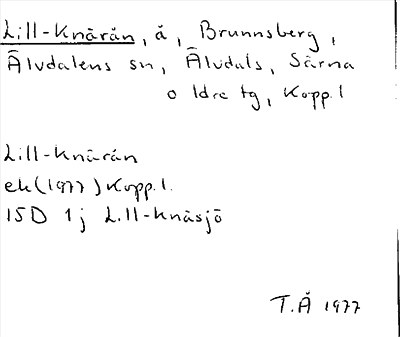 Lill-Knärån, å, Brunnsberg,
Älvdalens sn, Älvdals, Särna
o Idre tg, Kopp.l
Lill-Knärån
ek (1977) Kopp.l.
15D 1j Lill-Knäsjö
T.Å 1977